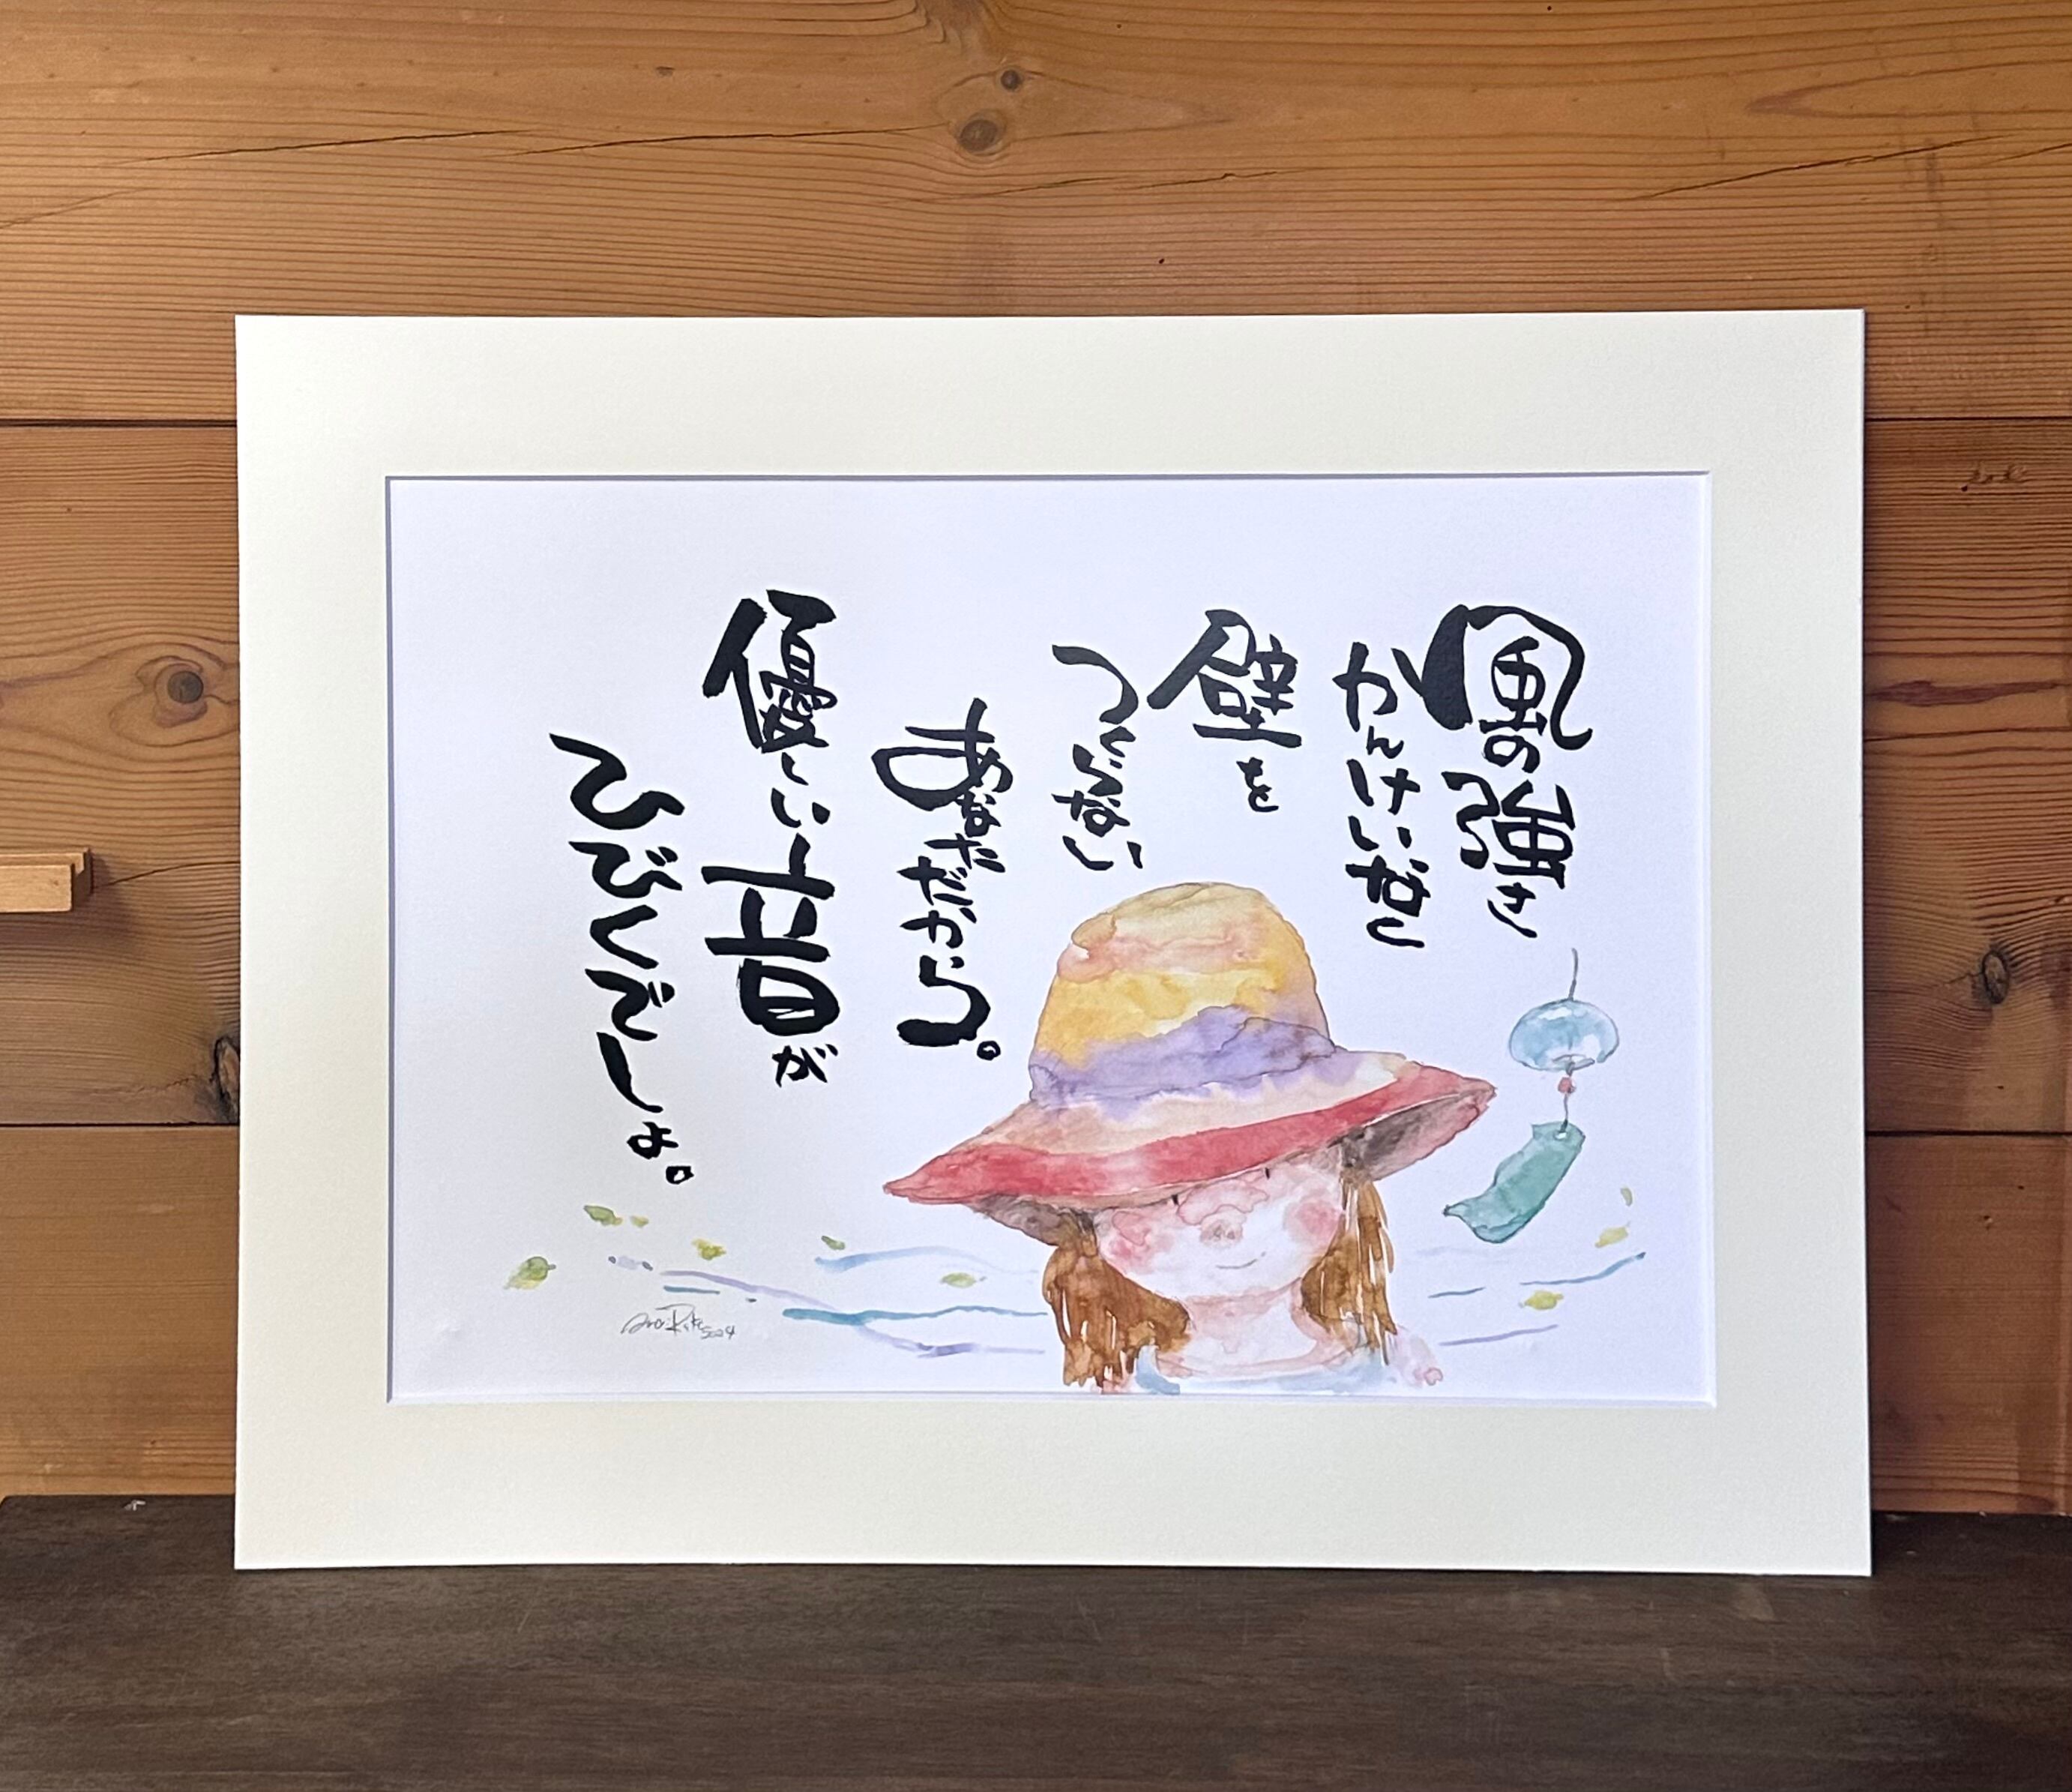 風の強さ
かんけいなく
壁を
つくらない
あなただから。
優しい音が
ひびくでしょ。
2024